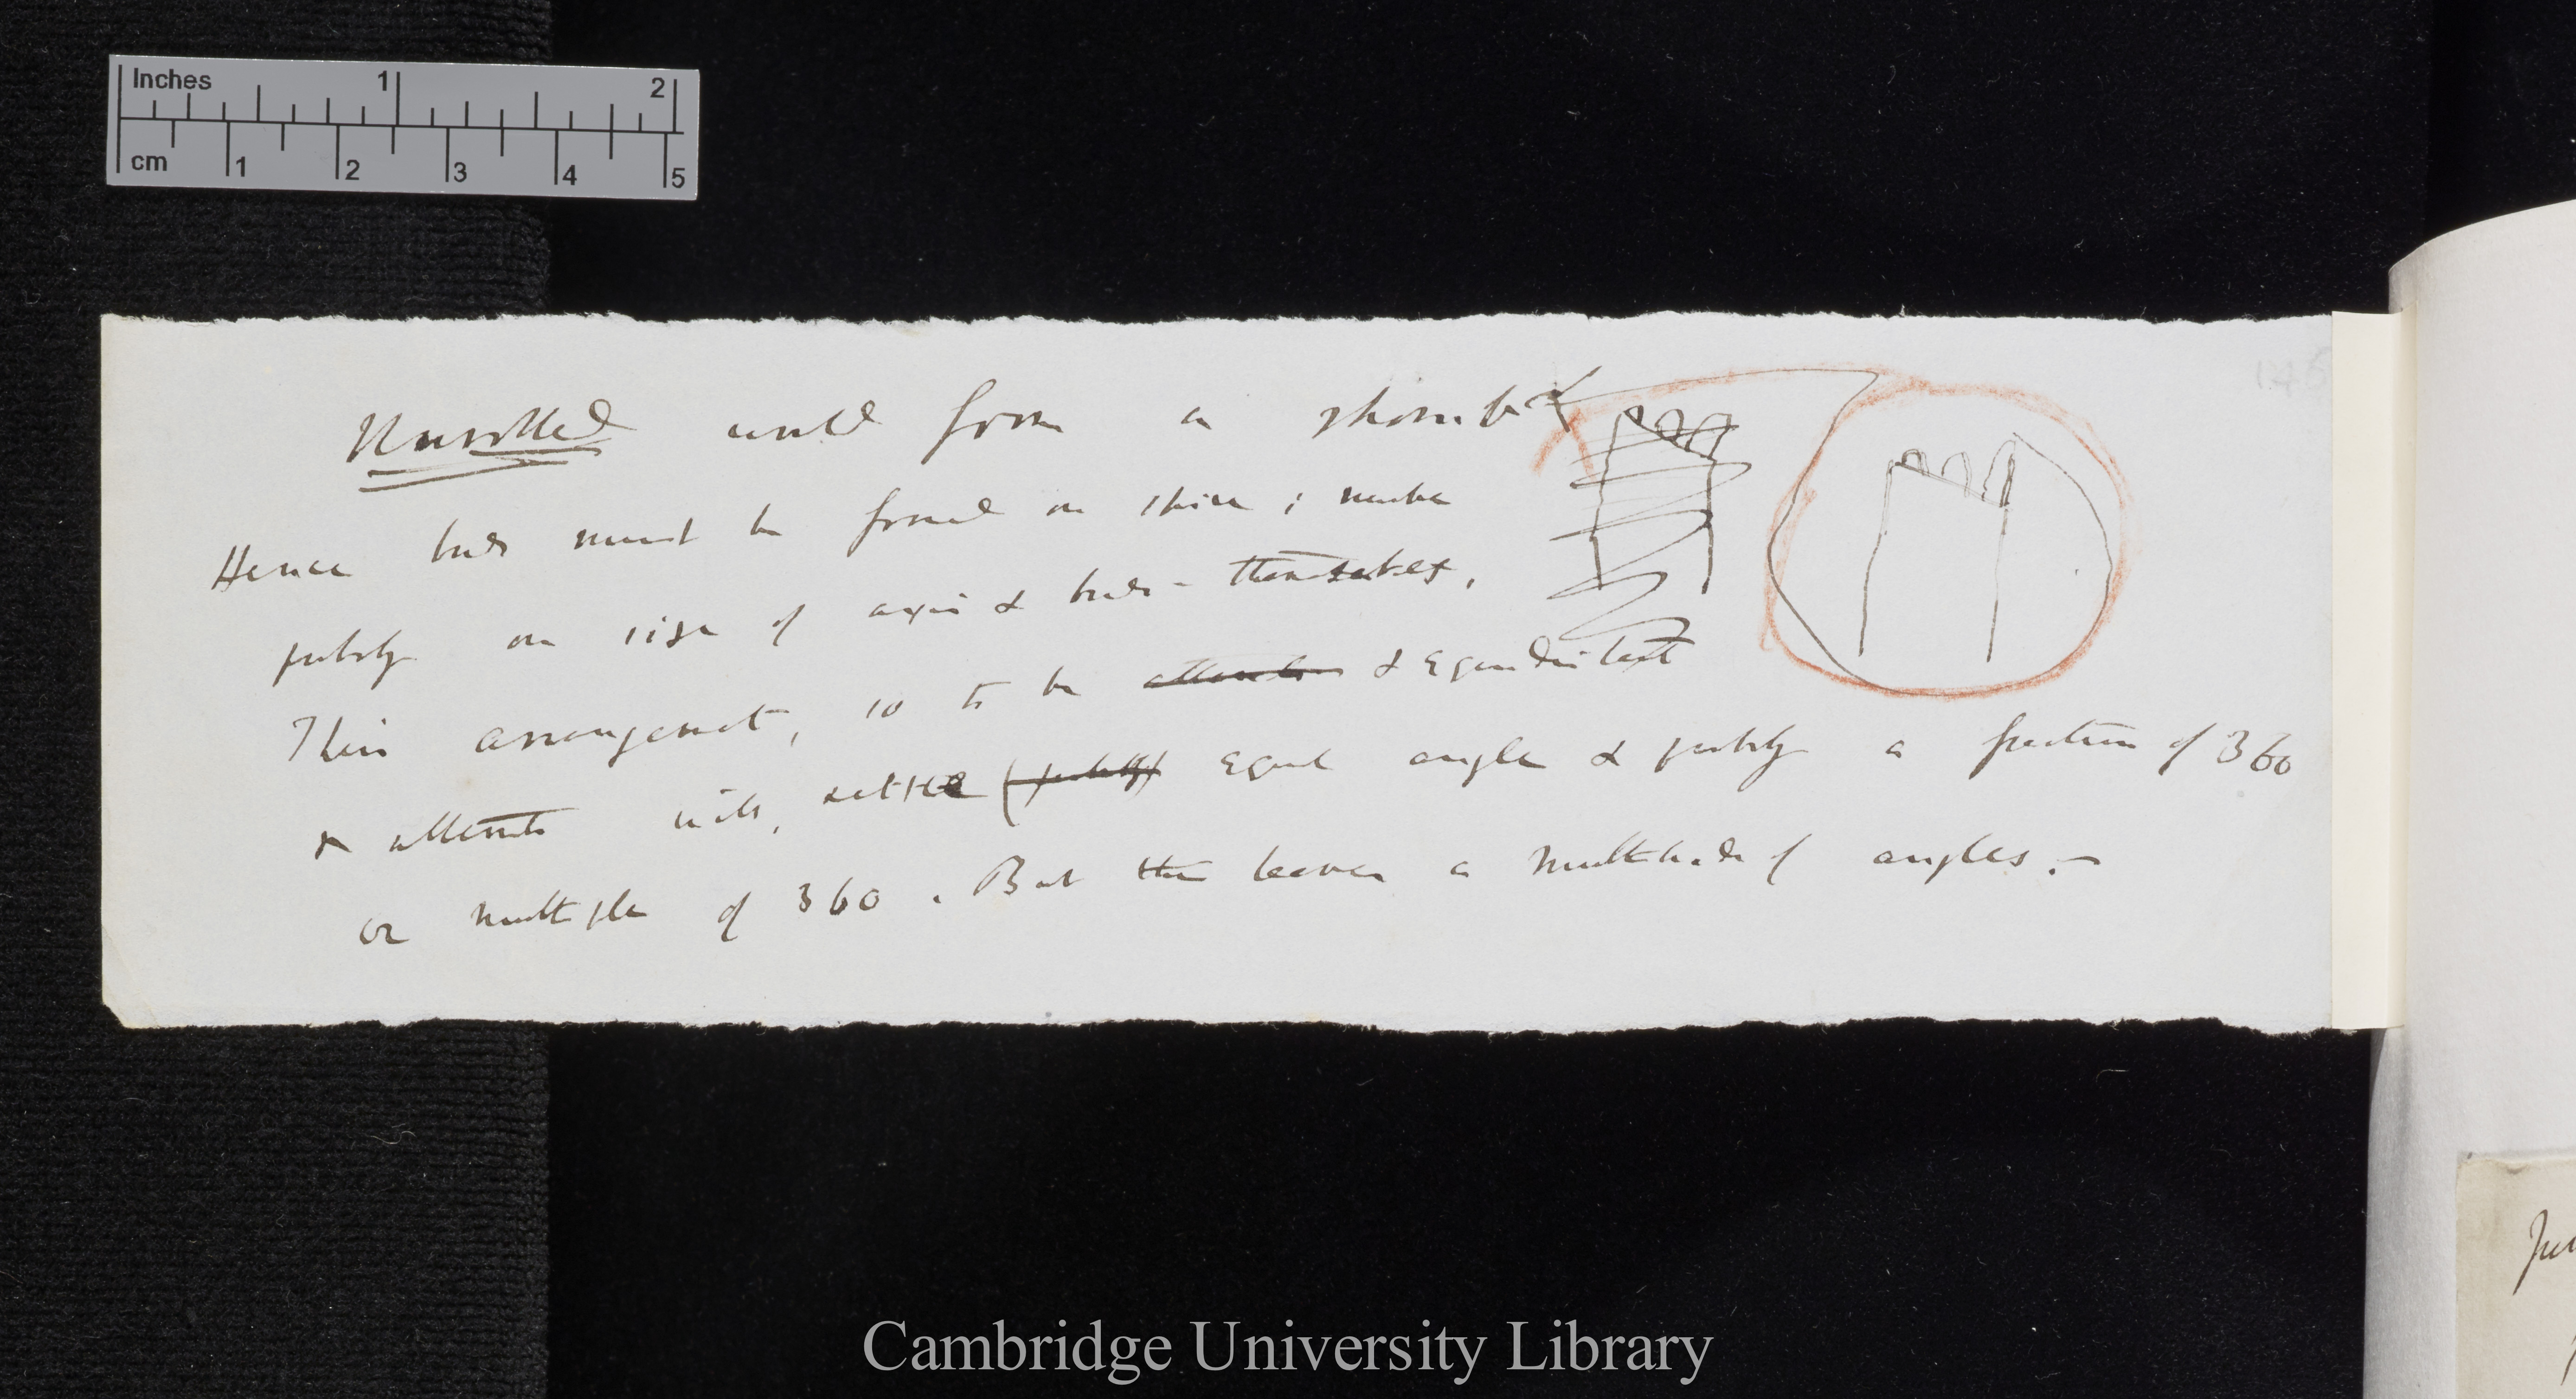 Inches 1 2
cm 1 2 3 4 5
146
Unrolled would form a rhomb
Hence buds must be formed on spire; number
probably on size of axis & buds themselves,
This arrangement, so to be alternate & equidistant
& alternate with, settle (probably) equal angle & probably a fraction of 360
or multiple of 360. But this leaves a multitude of angles.—
Cambridge University Library